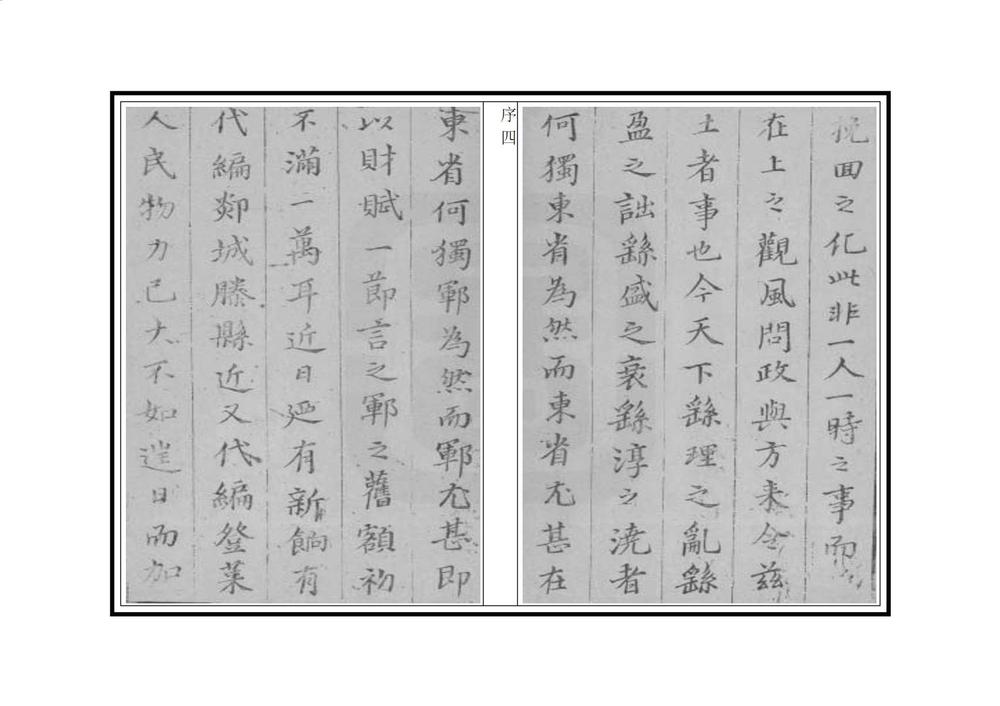 挽回之化此非一人一時之事而
在上之觀風問政與方来令兹
土者事也今天下繇理之亂繇
盈之詘繇盛之衰繇淳之澆者
何獨東省為然而東省尤甚在
序四
東省何獨鄆為然而鄆尤甚即
以財賦一節言之鄆之舊額初
不滿一萬耳近日廼有新餉有
代編郯城滕縣近又代編登萊
人民物力已大不如遑日而加